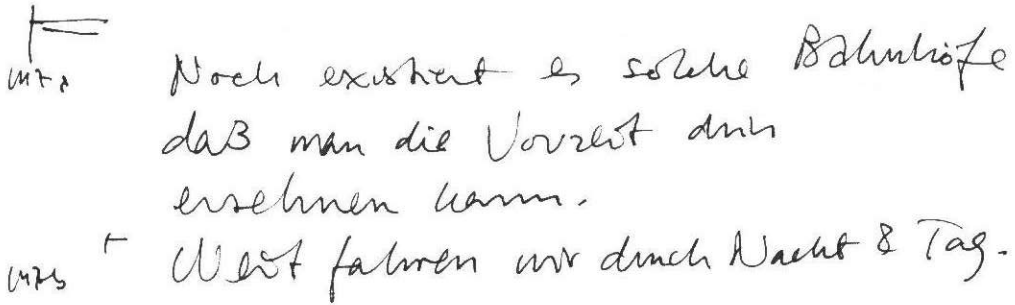 Noch existiert es solche Bahnhöfe
daß man die Vorzeit drin
ersehnen kann.
Weit fahren wir durch Nacht & Tag.